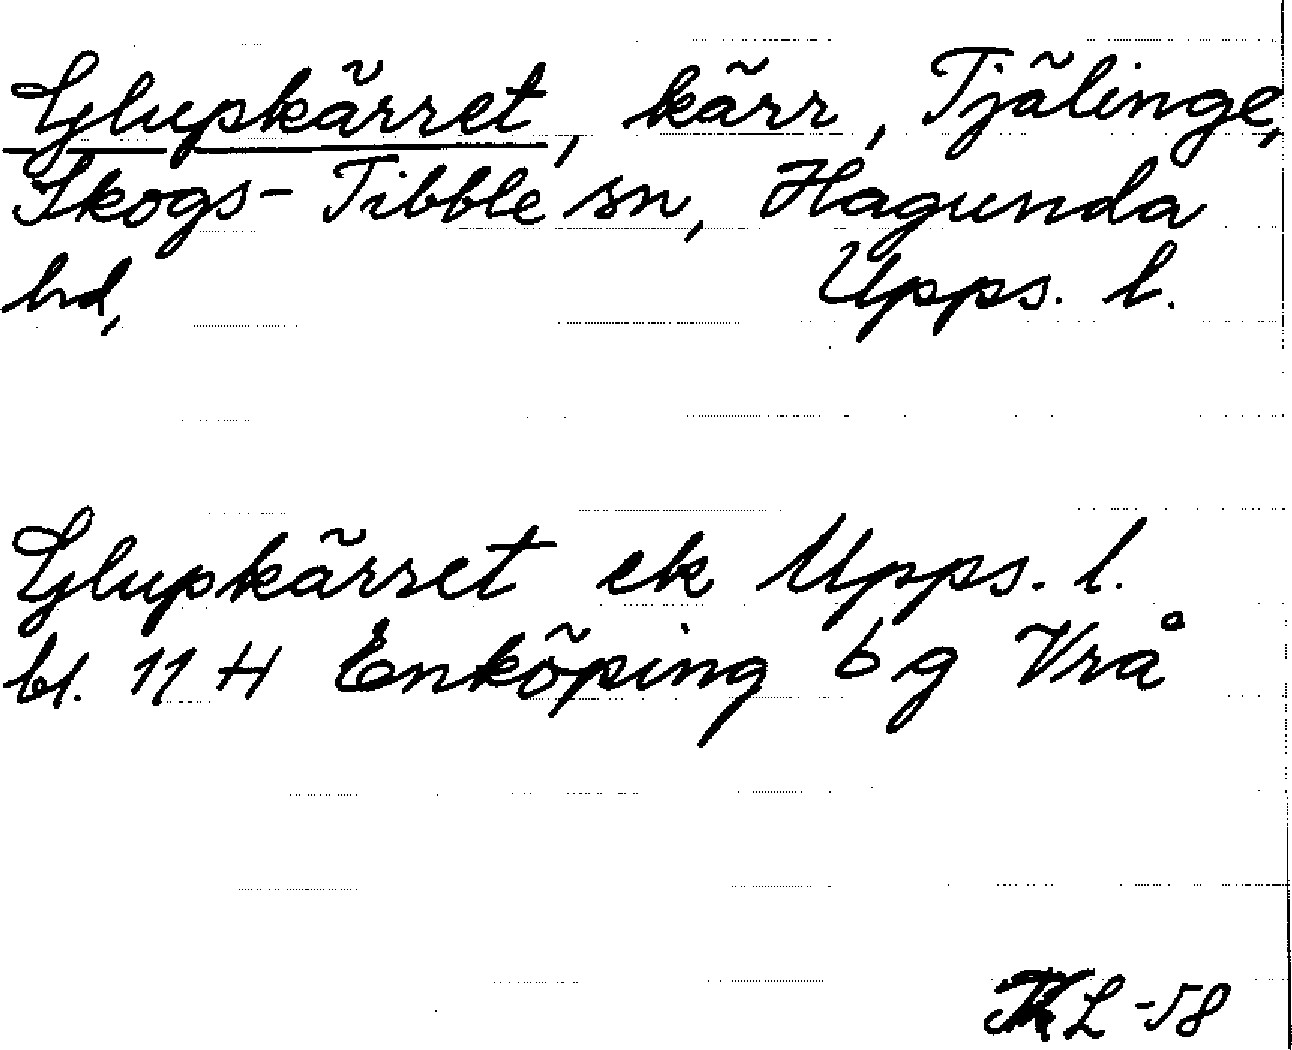 Glupkärret, kärr, Tjälinge,
Skogs-Tibble sn, Hagunda
hd, Upps. l.
Glupkärret ek Upps. l.
bl. 11 H Enköping 6 g Vrå
L -58